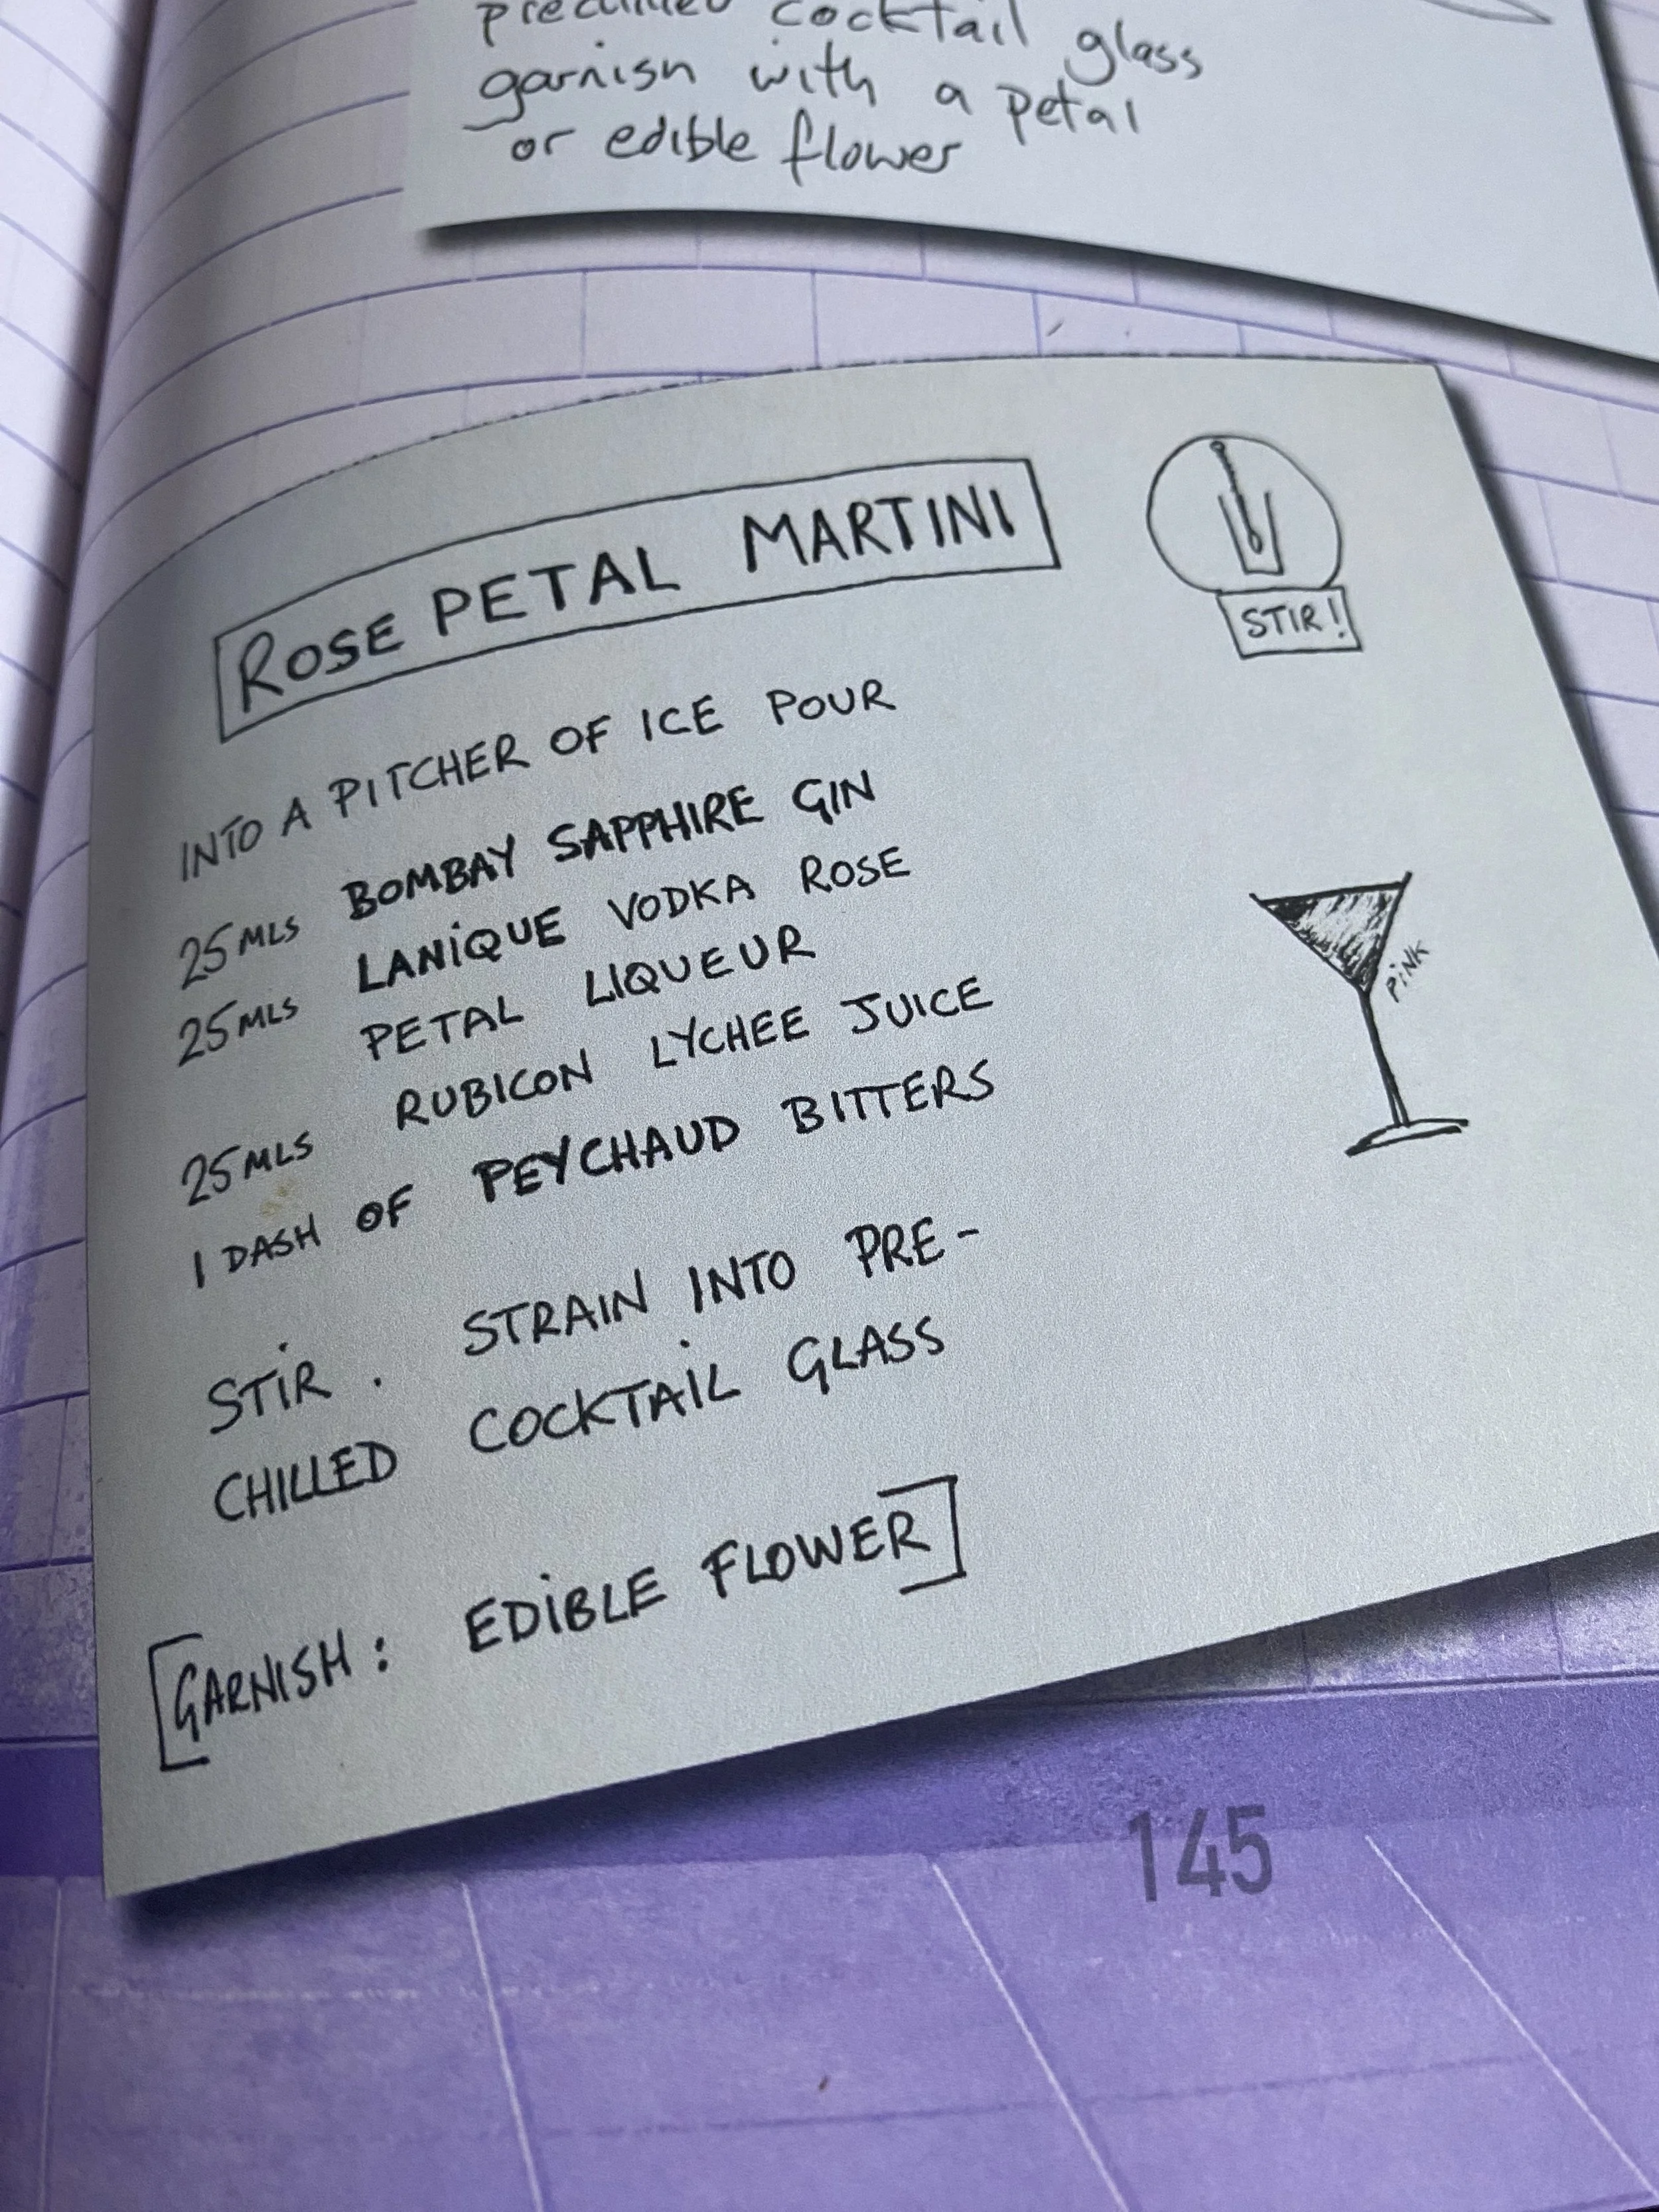 prechilled cocktail glass
garnish with a petal
or edible flower
ROSE PETAL MARTINI
STIR!
INTO A PITCHER OF ICE POUR
25MLS BOMBAY SAPPHIRE GIN
25MLS LANIQUE VODKA ROSE
PETAL LIQUEUR
25MLS RUBICON LYCHEE JUICE
1 DASH OF PEYCHAUD BITTERS
PINK
STIR. STRAIN INTO PRE-
CHILLED COCKTAIL GLASS
[GARNISH: EDIBLE FLOWER]
145